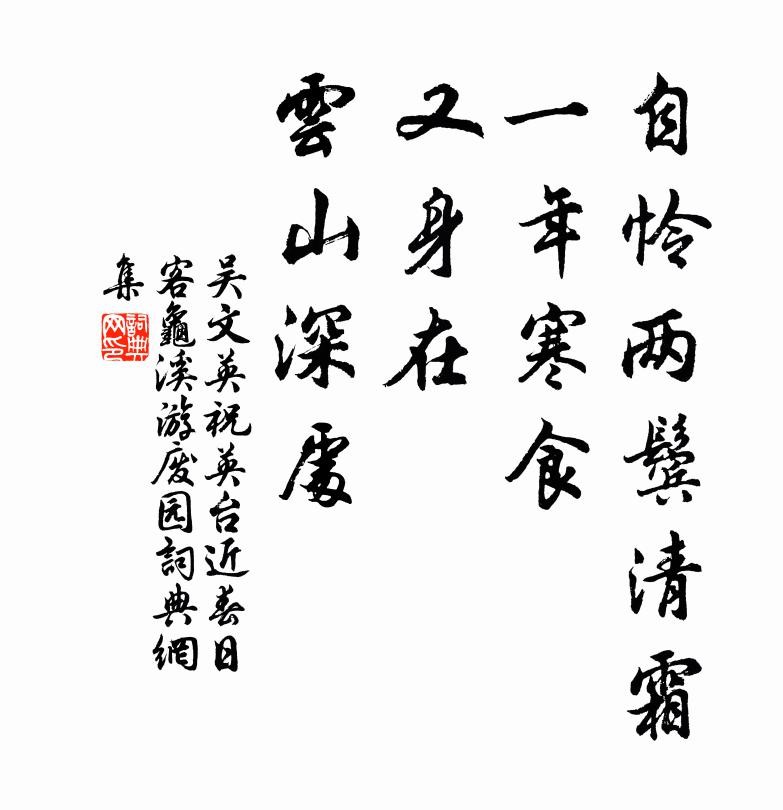 自怜两鬓清霜
一年寒食
又身在
雲山深處
吴文英祝英台近春日
客龜溪游废园詞典網
集
詞典
网印